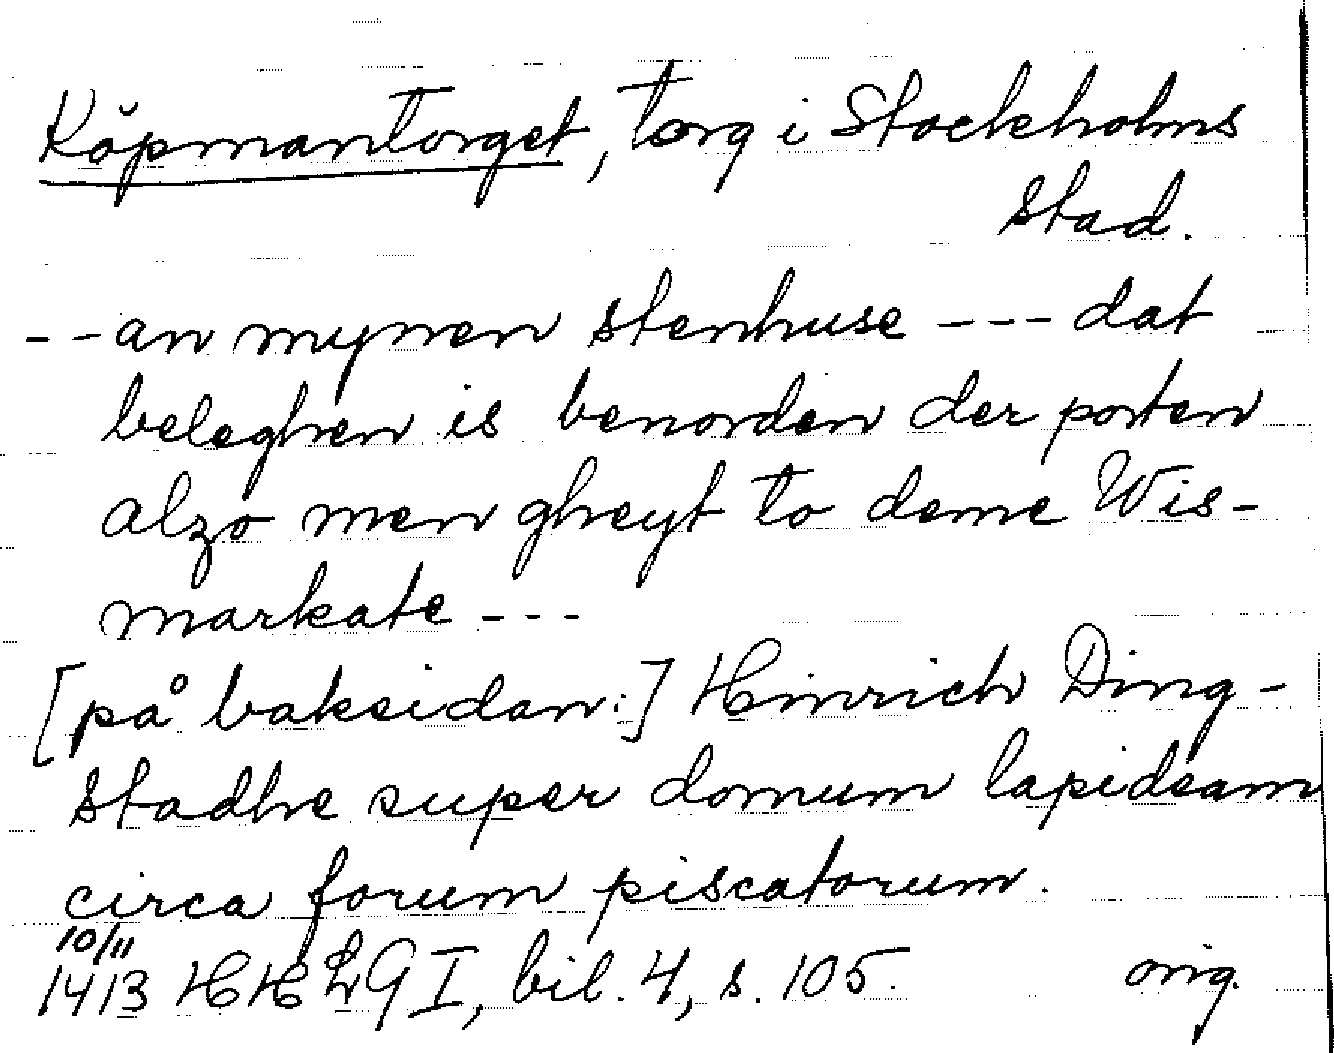 Köpmantorget, torg i Stockholms
stad.
-- an mynen stenhuse --- dat
beleghen is benorden der porten
alzo men gheyt to deme Wis-
markate ---
[på baksidan:] Hinrich Ding-
stadhe super domum lapideam
circa forum piscatorum.
10/11
1413 HH LG I, bil. 4, s. 105. orig.